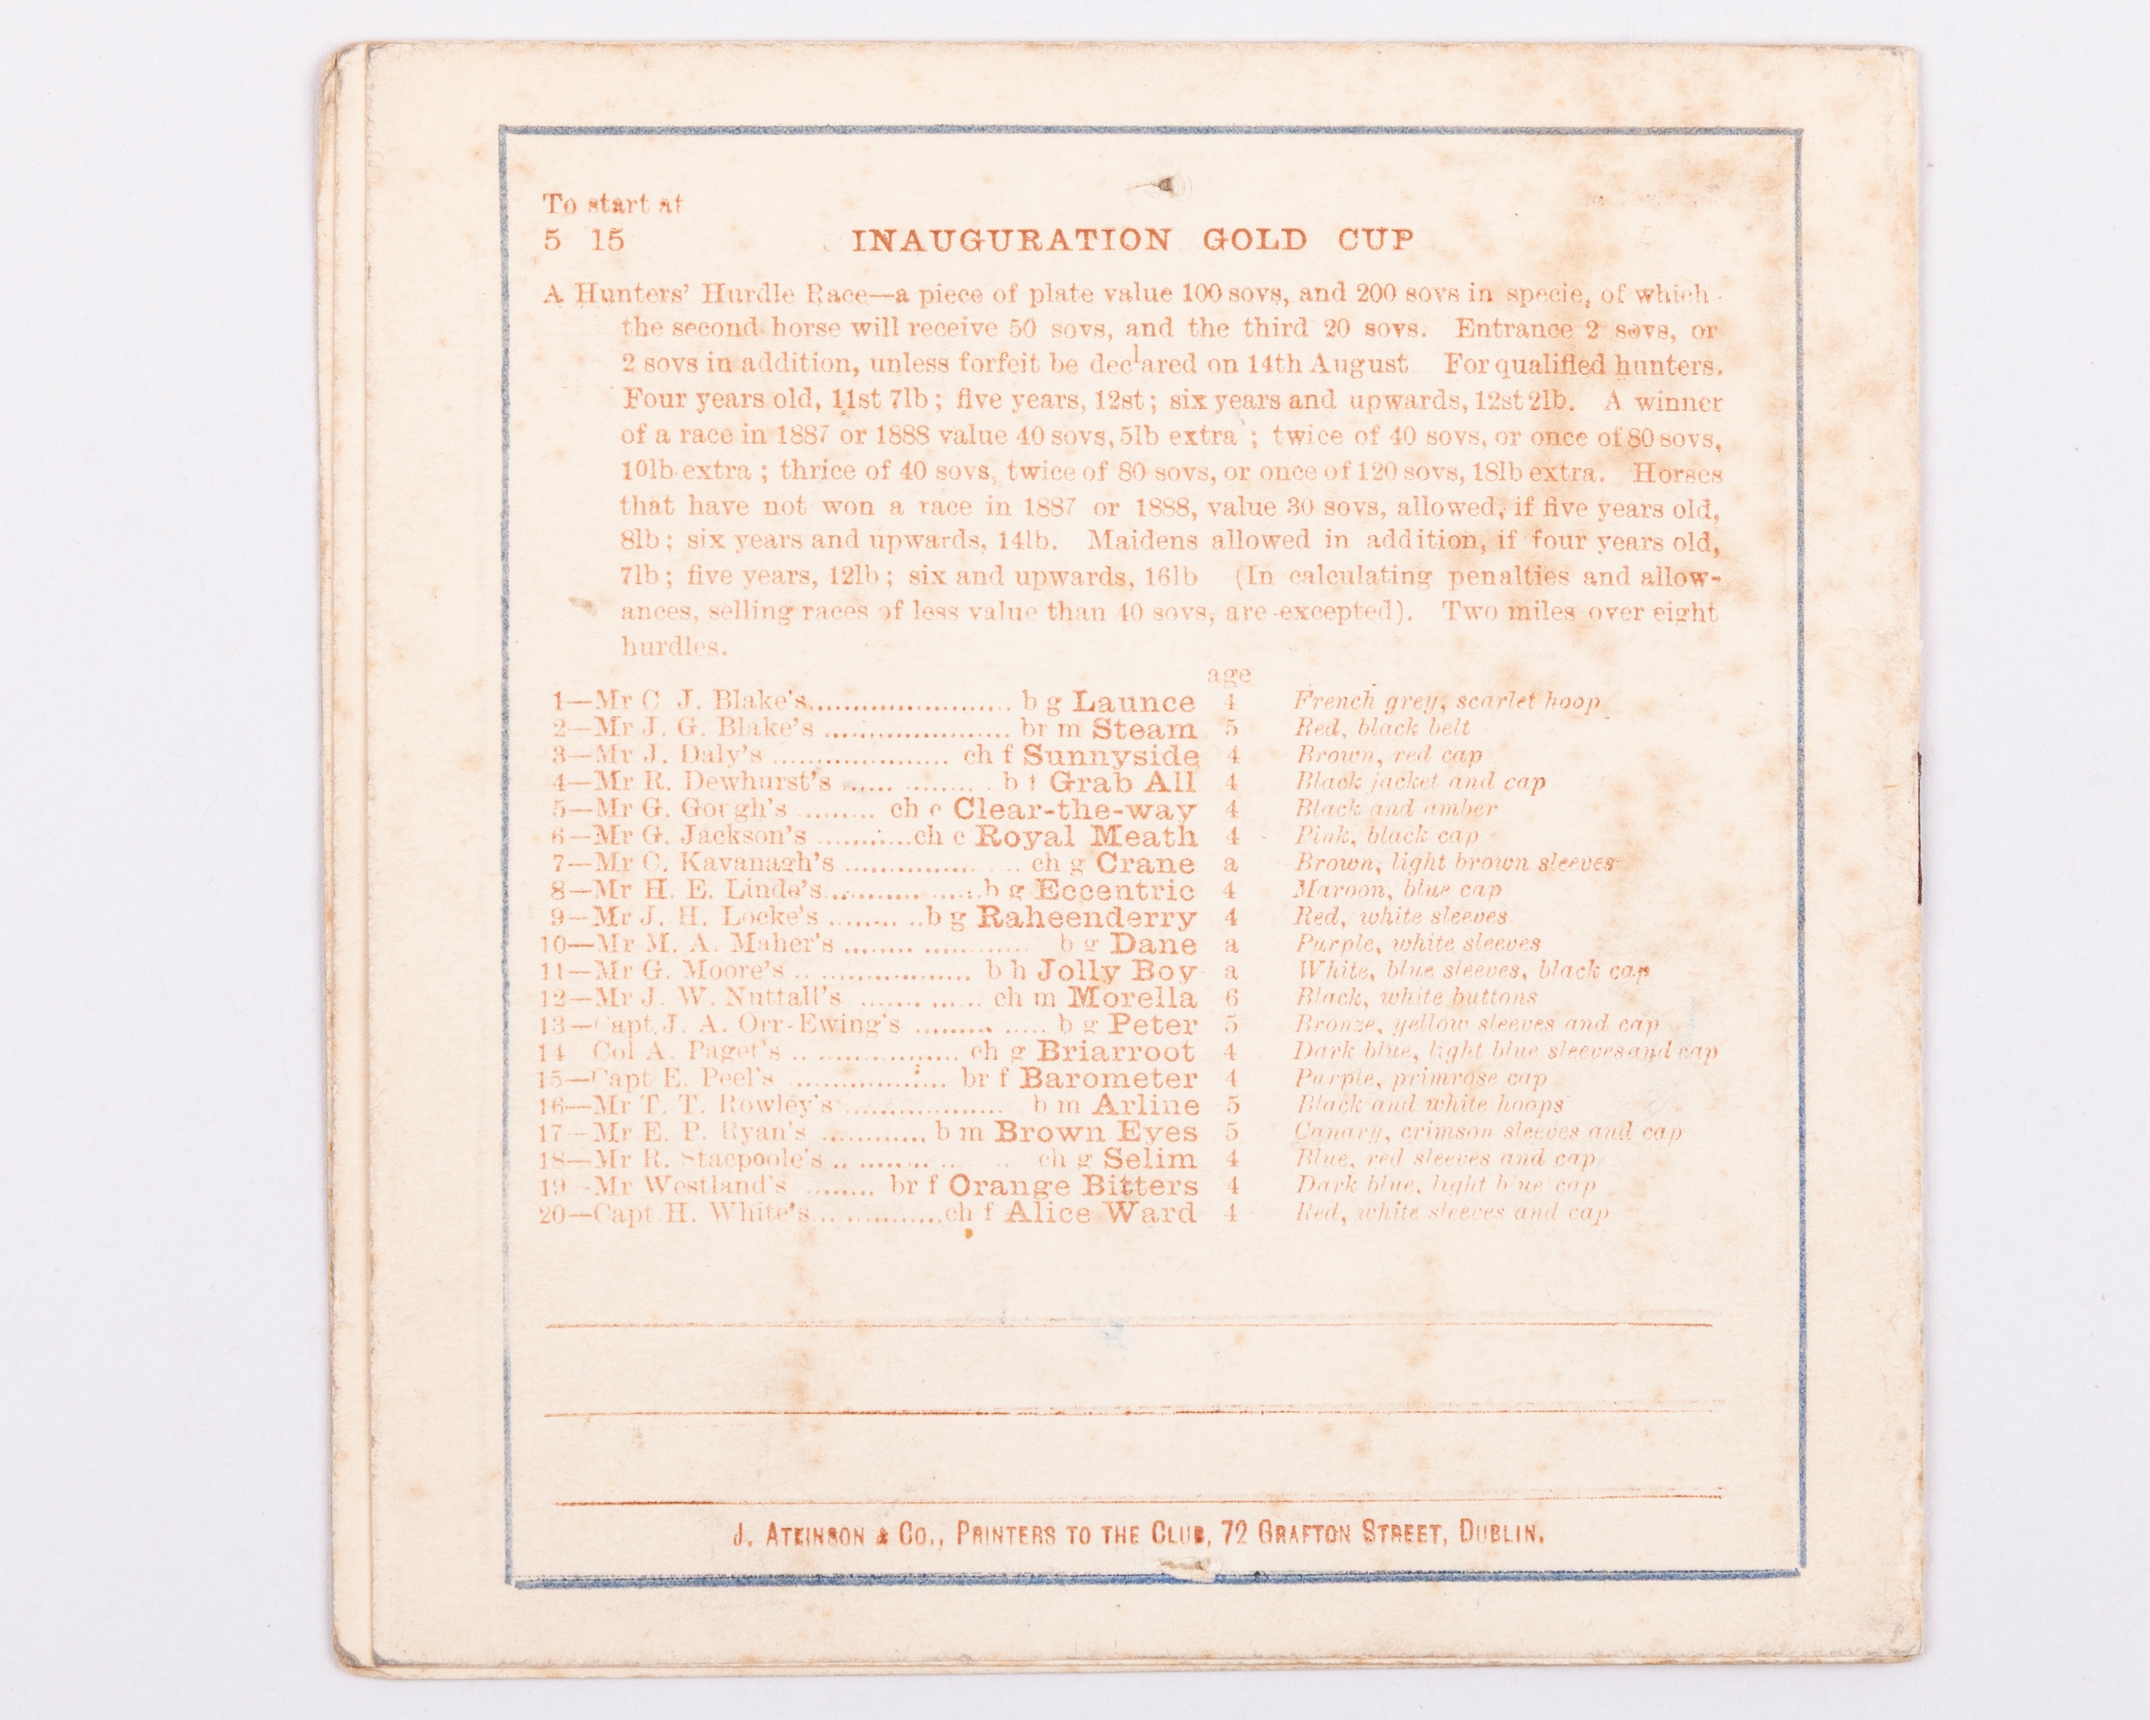 To start at
5 15 INAUGURATION GOLD CUP
A Hunters' Hurdle Race—a piece of plate value 100 sovs, and 200 sovs in specie, of which
the second horse will receive 50 sovs, and the third 20 sovs. Entrance 2 sovs, or
2 sovs in addition, unless forfeit be declared on 14th August For qualified hunters.
Four years old, 11st 7lb; five years, 12st; six years and upwards, 12st 2lb. A winner
of a race in 1887 or 1888 value 40 sovs, 5lb extra; twice of 40 sovs, or once of 80 sovs,
10lb extra; thrice of 40 sovs, twice of 80 sovs, or once of 120 sovs, 18lb extra. Horses
that have not won a race in 1887 or 1888, value 30 sovs, allowed, if five years old,
8lb; six years and upwards, 14lb. Maidens allowed in addition, if four years old,
7lb; five years, 12lb; six and upwards, 16lb (In calculating penalties and allow-
ances, selling races of less value than 40 sovs, are excepted). Two miles over eight
hurdles.
age
1—Mr C J. Blake's........................ b g Launce 4 French grey, scarlet hoop
2—Mr J. G. Blake's ...................... br m Steam 5 Red, black belt
3—Mr J. Daly's ..................... ch f Sunnyside 4 Brown, red cap
4—Mr R. Dewhurst's ...... ......... b f Grab All 4 Black jacket and cap
5—Mr G. Gough's ........ ch c Clear-the-way 4 Black and amber
6—Mr G. Jackson's ............ch c Royal Meath 4 Pink, black cap
7—Mr C. Kavanagh's .................. ch g Crane a Brown, light brown sleeves
8—Mr H. E. Linde's..................b g Eccentric 4 Maroon, blue cap
9—Mr J. H. Locke's ...........b g Raheenderry 4 Red, white sleeves
10—Mr M. A. Maher's ........ ............ b g Dane a Purple, white sleeves
11—Mr G. Moore's .. ................. b h Jolly Boy a White, blue sleeves, black cap
12—Mr J. W. Nuttall's ....... ...... ch m Morella 6 Black, white buttons
13—Capt. J. A. Orr-Ewing's ......... ..... b g Peter 5 Bronze, yellow sleeves and cap
14 Col A. Paget's .. ................ ch g Briarroot 4 Dark blue, light blue sleeves and cap
15—Capt E. Peel's .................. br f Barometer 4 Purple, primrose cap
16—Mr T. T. Rowley's .................... b m Arline 5 Black and white hoops
17—Mr E. P. Ryan's ............ b m Brown Eyes 5 Canary, crimson sleeves and cap
18—Mr R. Stacpoole's .. ......... .. .. ch g Selim 4 Blue, red sleeves and cap
19—Mr Westland's ........ br f Orange Bitters 4 Dark blue, light blue cap
20—Capt H. White's... ............ch f Alice Ward 4 Red, white sleeves and cap
J. ATKINSON & CO., PRINTERS TO THE CLUB, 72 GRAFTON STREET, DUBLIN.